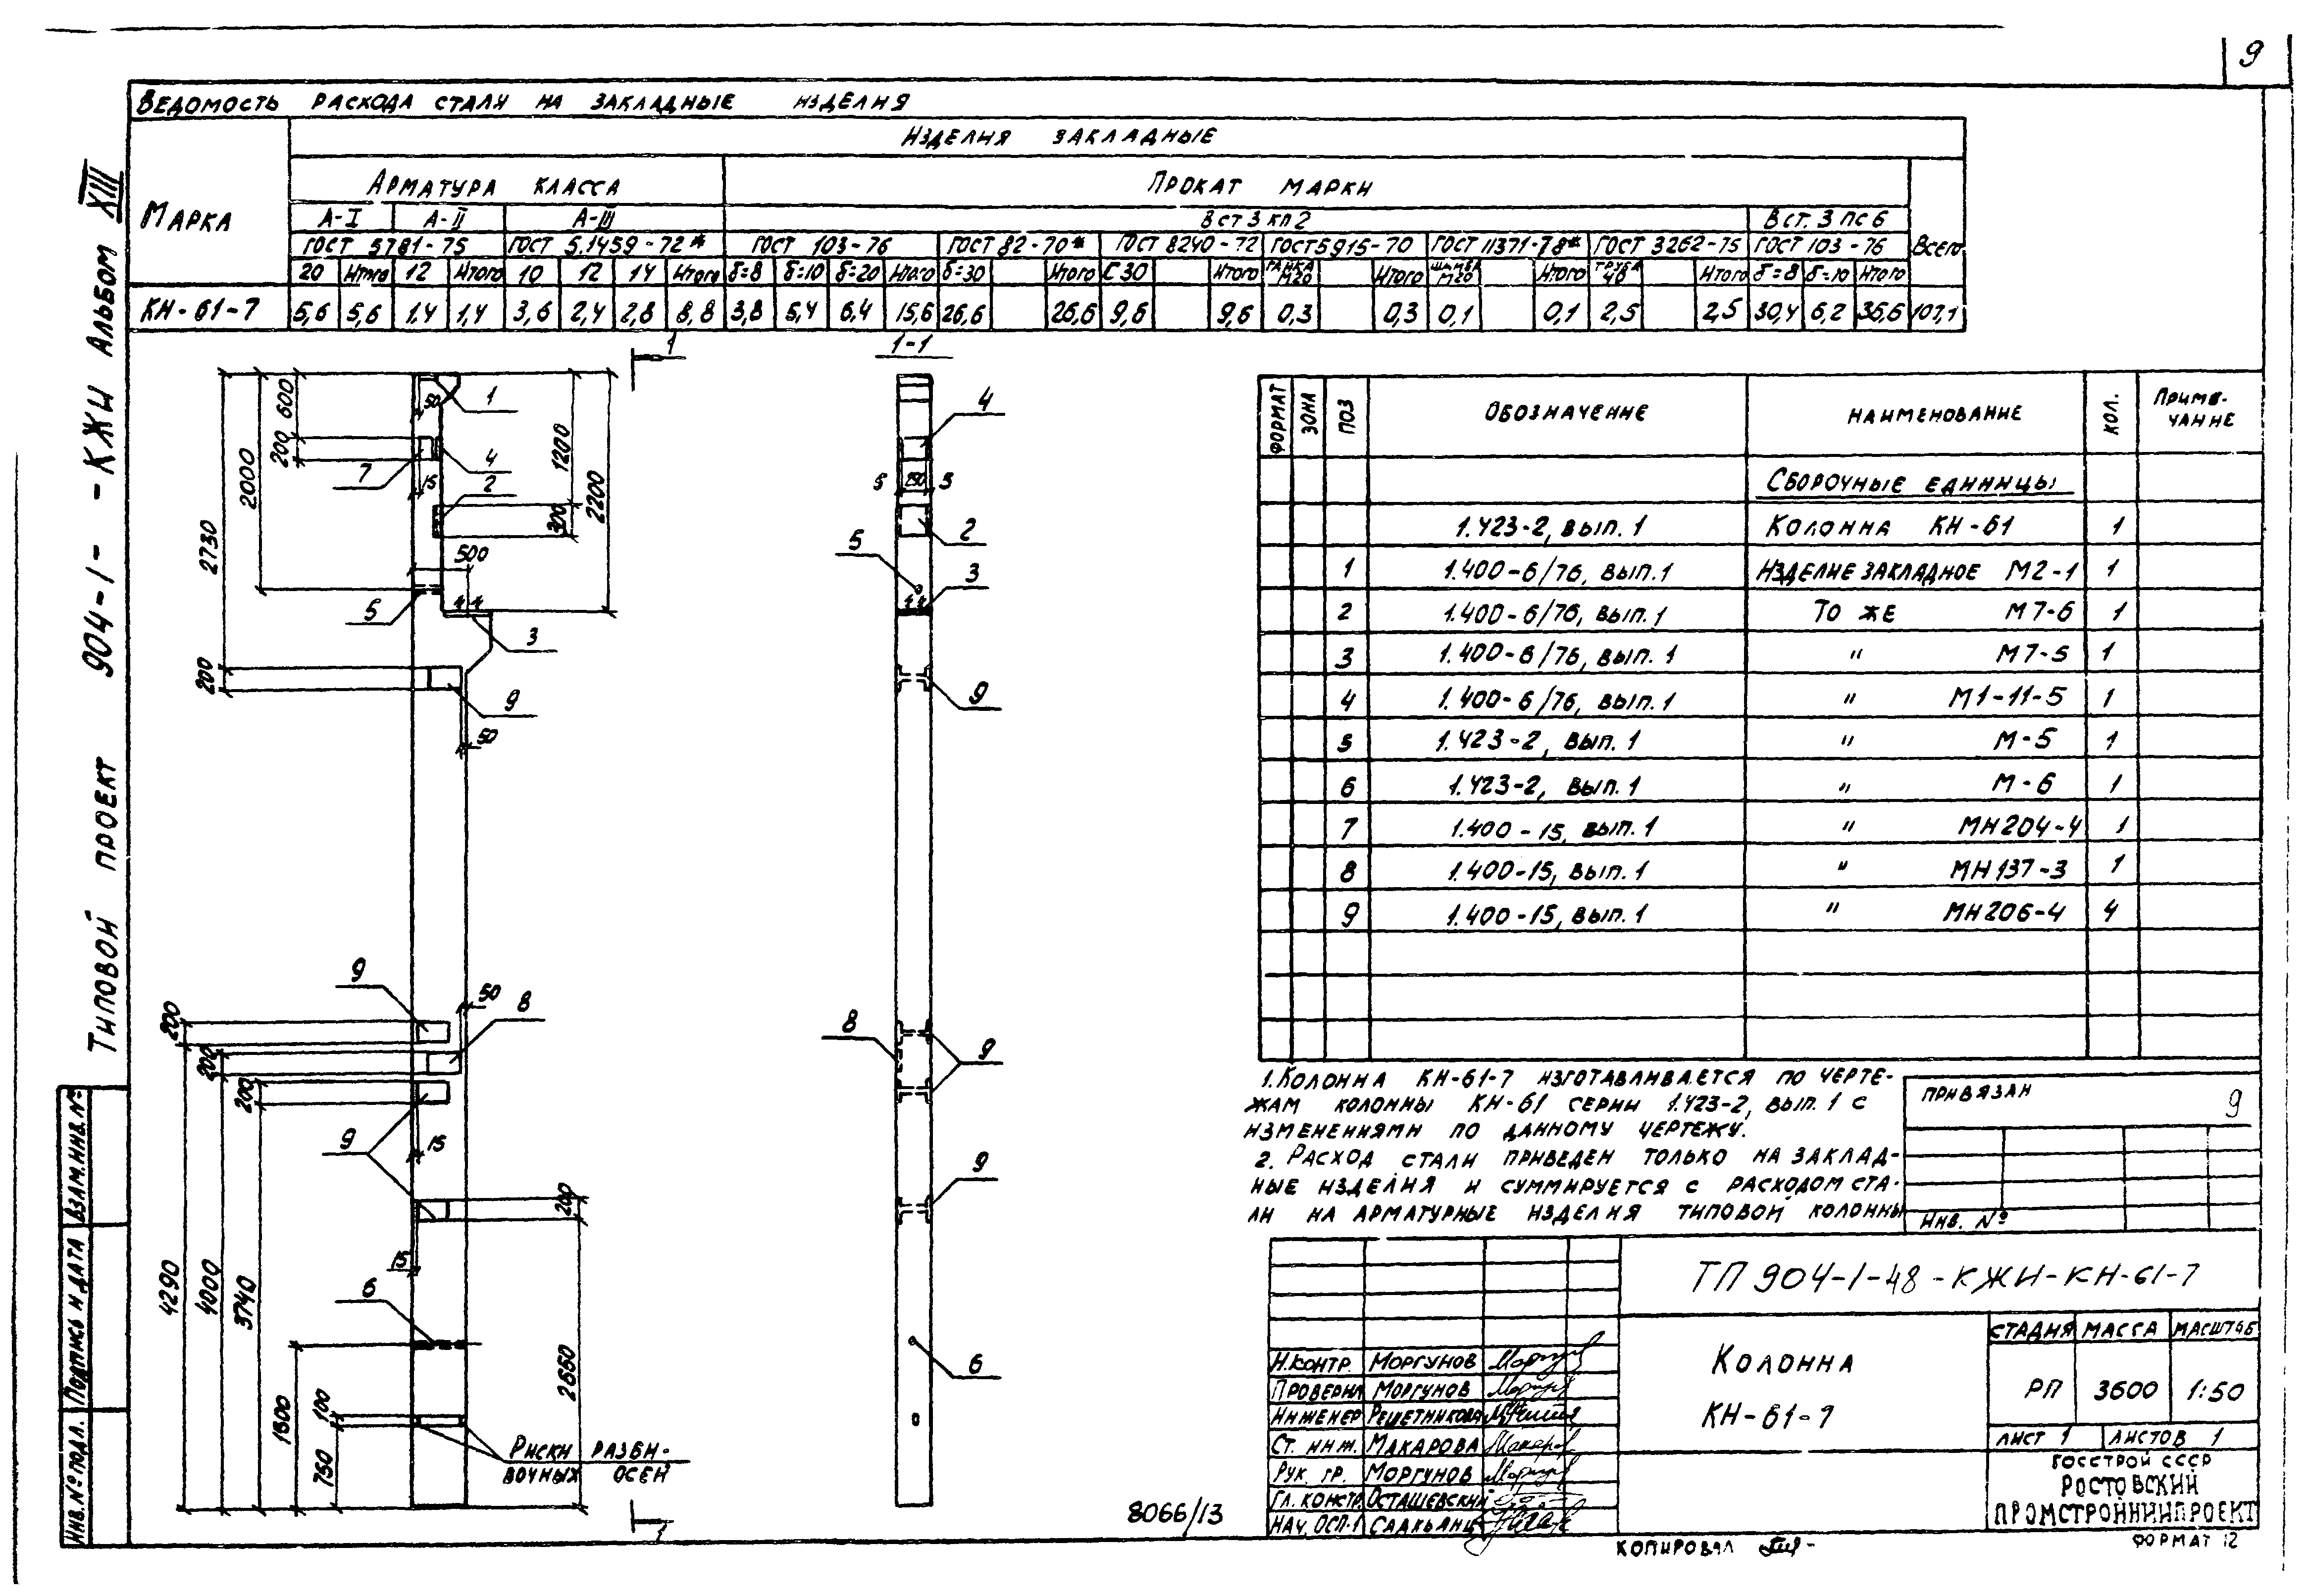 9
Ведомость расхода стали на закладные изделия
Марка
Изделия закладные
Арматура класса
Прокат марки
Всего
А-I А-II А-III
В ст 3 кп 2
В ст. 3 пс 6
ГОСТ 5781-75 ГОСТ 5.1459-72* ГОСТ 103-76 ГОСТ 82-70* ГОСТ 8240-72 ГОСТ 5915-70 ГОСТ 11371-78* ГОСТ 3262-75 ГОСТ 103-76
20 Итого 12 Итого 10 12 14 Итого δ=8 δ=10 δ=20 Итого δ=30 Итого С 30 Итого Гайка М20 Итого Шайба М20 Итого Труба 40 Итого δ=8 δ=10 Итого
КН-61-7 5,6 5,6 1.4 1,4 3,6 2,4 2,8 8,8 3,8 5,4 6.4 15,6 26,6 26,6 9,6 9,6 0,3 0,3 0,1 0,1 2,5 2,5 30,4 6,2 36,6 107,1
Типовой проект 904-1- -КЖИ Альбом XIII
Инв.№ подл. Подпись и дата Взам.инв.№
1
1-1
600
200
2000
2730
200
50
1
7
4
15
2
1200
300
2200
500
5
4 4
3
9
50
9
50
8
200
200
200
9
15
15
200
6
4290
4000
3740
1800
100
750
2660
Риски разби-
вочных осей
1
4
5 190 5
2
5
3
4 4
9
8
9
9
6
8066/13
Формат Зона Поз Обозначение Наименование Кол. Приме-
чание
Сборочные единицы
1.423-2, вып. 1 Колонна КН-61 1
1 1.400-6/76, вып. 1 Изделие закладное М2-1 1
2 1.400-6/76, вып. 1 То же М7-6 1
3 1.400-6/76, вып. 1 " М7-5 1
4 1.400-6/76, вып. 1 " М1-11-5 1
5 1.423-2, вып. 1 " М-5 1
6 1.423-2, вып. 1 " М-6 1
7 1.400-15, вып. 1 " МН204-4 1
8 1.400-15, вып. 1 " МН137-3 1
9 1.400-15, вып. 1 " МН206-4 4
1. Колонна КН-61-7 изготавливается по черте-
жам колонны КН-61 серии 1.423-2, вып. 1 с
изменениями по данному чертежу.
2. Расход стали приведен только на заклад-
ные изделия и суммируется с расходом ста-
ли на арматурные изделия типовой колонны
Привязан
9
Инв. №
ТП 904-1-48-КЖИ-КН-61-7
Колонна
КН-61-7
Стадия Масса Масштаб
РП 3600 1:50
Лист 1 Листов 1
Госстрой СССР
Ростовский
Промстройниипроект
Н.контр. Моргунов
Проверил Моргунов
Инженер Решетникова
Ст. инж. Макарова
Рук. гр. Моргунов
Гл. констр. Осташевский
Нач. ОСП-1 Садкьянц
Копировал
Формат 12